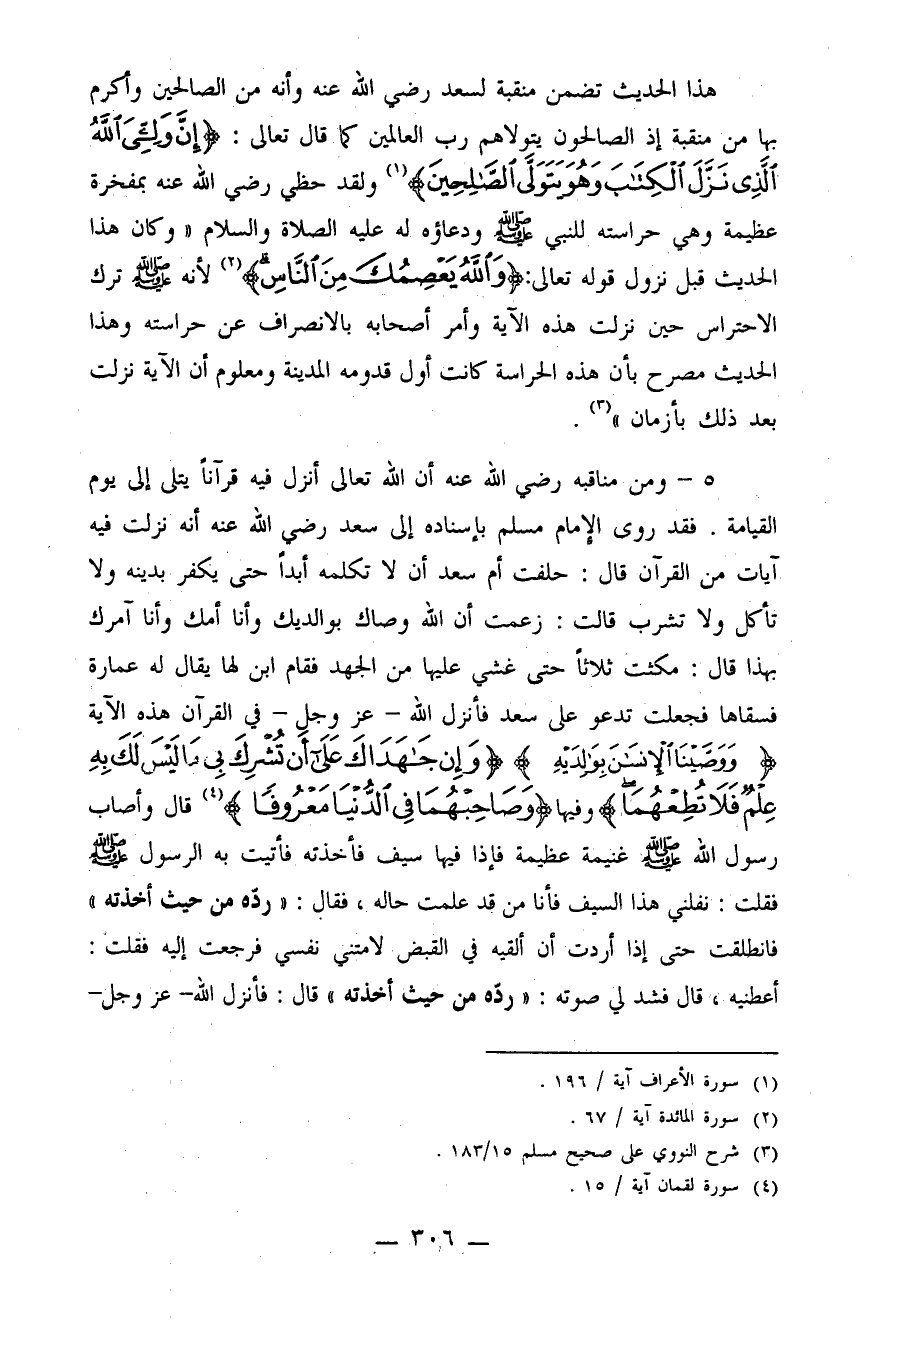 هذا الحديث تضمن منقبة لسعد رضي الله عنه وأنه من الصالحين وأكرم
بها من منقبة إذ الصالحون يتولاهم رب العالمين كما قال تعالى : ﴿إِنَّ وَلِـِّۧيَ ٱللَّهُ
ٱلَّذِي نَزَّلَ ٱلْكِتَٰبَ وَهُوَ يَتَوَلَّى ٱلصَّٰلِحِينَ﴾(١) ولقد حظي رضي الله عنه بمفخرة
عظيمة وهي حراسته للنبي ﷺ ودعاؤه له عليه الصلاة والسلام « وكان هذا
الحديث قبل نزول قوله تعالى:﴿وَٱللَّهُ يَعْصِمُكَ مِنَ ٱلنَّاسِ﴾(٢) لأنه ﷺ ترك
الاحتراس حين نزلت هذه الآية وأمر أصحابه بالانصراف عن حراسته وهذا
الحديث مصرح بأن هذه الحراسة كانت أول قدومه المدينة ومعلوم أن الآية نزلت
بعد ذلك بأزمان »(٣) .
٥ – ومن مناقبه رضي الله عنه أن الله تعالى أنزل فيه قرآناً يتلى إلى يوم
القيامة . فقد روى الإمام مسلم بإسناده إلى سعد رضي الله عنه أنه نزلت فيه
آيات من القرآن قال : حلفت أم سعد أن لا تكلمه أبداً حتى يكفر بدينه ولا
تأكل ولا تشرب قالت : زعمت أن الله وصاك بوالديك وأنا أمك وأنا آمرك
بهذا قال : مكثت ثلاثاً حتى غشي عليها من الجهد فقام ابن لها يقال له عمارة
فسقاها فجعلت تدعو على سعد فأنزل الله – عز وجل – في القرآن هذه الآية
﴿ وَوَصَّيْنَا ٱلْإِنسَٰنَ بِوَٰلِدَيْهِ ﴾ ﴿وَإِن جَٰهَدَاكَ عَلَىٰٓ أَن تُشْرِكَ بِي مَا لَيْسَ لَكَ بِهِ
عِلْمٌ فَلَا تُطِعْهُمَا ﴾ وفيها ﴿وَصَاحِبْهُمَا فِي ٱلدُّنْيَا مَعْرُوفًا ﴾(٤) قال وأصاب
رسول الله ﷺ غنيمة عظيمة فإذا فيها سيف فأخذته فأتيت به الرسول ﷺ
فقلت : نفلني هذا السيف فأنا من قد علمت حاله ، فقال : « ردّه من حيث أخذته »
فانطلقت حتى إذا أردت أن ألقيه في القبض لامتني نفسي فرجعت إليه فقلت :
أعطنيه ، قال فشد لي صوته : « ردّه من حيث أخذته » قال : فأنزل الله– عز وجل–
(١) سورة الأعراف آية / ١٩٦ .
(٢) سورة المائدة آية / ٦٧ .
(٣) شرح النووي على صحيح مسلم ١٨٣/١٥ .
(٤) سورة لقمان آية / ١٥ .
— ٣٠٦ —